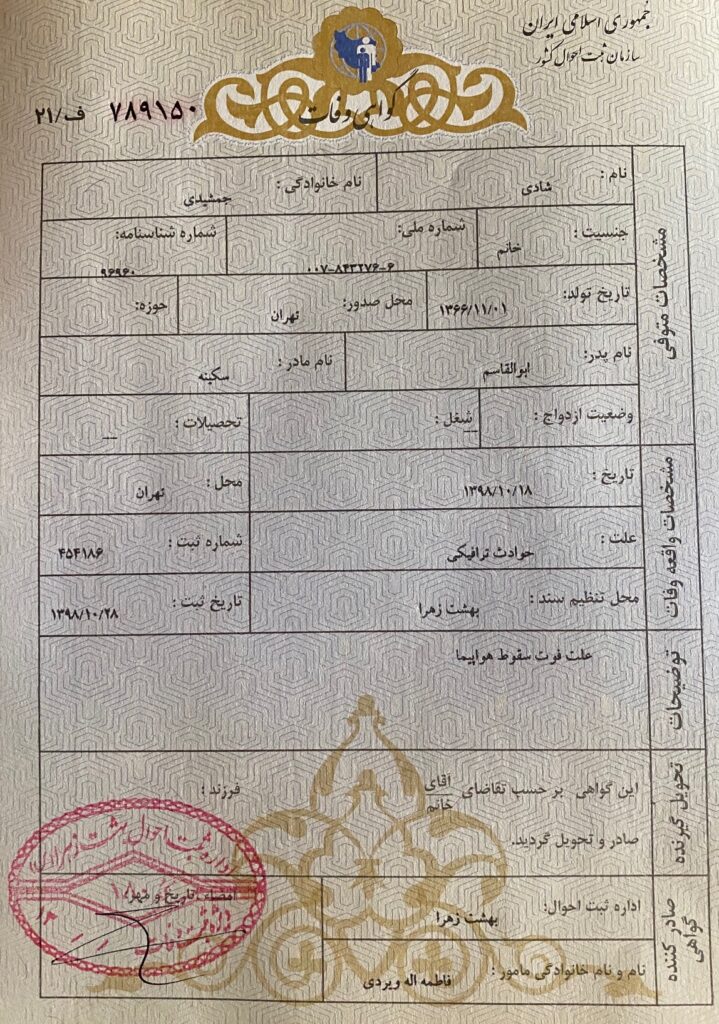 جمهوری اسلامی ایران
سازمان ثبت احوال کشور
گواهی وفات
ف/۲۱ ۷۸۹۱۵۰
مشخصات متوفی
نام : شادی نام خانوادگی : جمشیدی
جنسیت : خانم شماره ملی: ۰۰۷-۸۴۳۲۷۶-۶ شماره شناسنامه: ۹۶۹۶۰
تاریخ تولد: ۱۳۶۶/۱۱/۰۱ محل صدور: تهران حوزه:
نام پدر: ابوالقاسم نام مادر : سکینه
وضعیت ازدواج : شغل : — تحصیلات : —
مشخصات واقعه وفات
تاریخ : ۱۳۹۸/۱۰/۱۸ محل : تهران
علت : حوادث ترافیکی شماره ثبت : ۴۵۴۱۸۶
محل تنظیم سند : بهشت زهرا تاریخ ثبت : ۱۳۹۸/۱۰/۲۸
توضیحات
علت فوت سقوط هواپیما
تحویل گیرنده
این گواهی بر حسب تقاضای آقای/خانم فرزند :
صادر و تحویل گردید.
صادر کننده گواهی
اداره ثبت احوال: بهشت زهرا
نام و نام خانوادگی مامور : فاطمه اله ویردی
امضاء، تاریخ و مهر:
اداره ثبت احوال بهشت زهرا